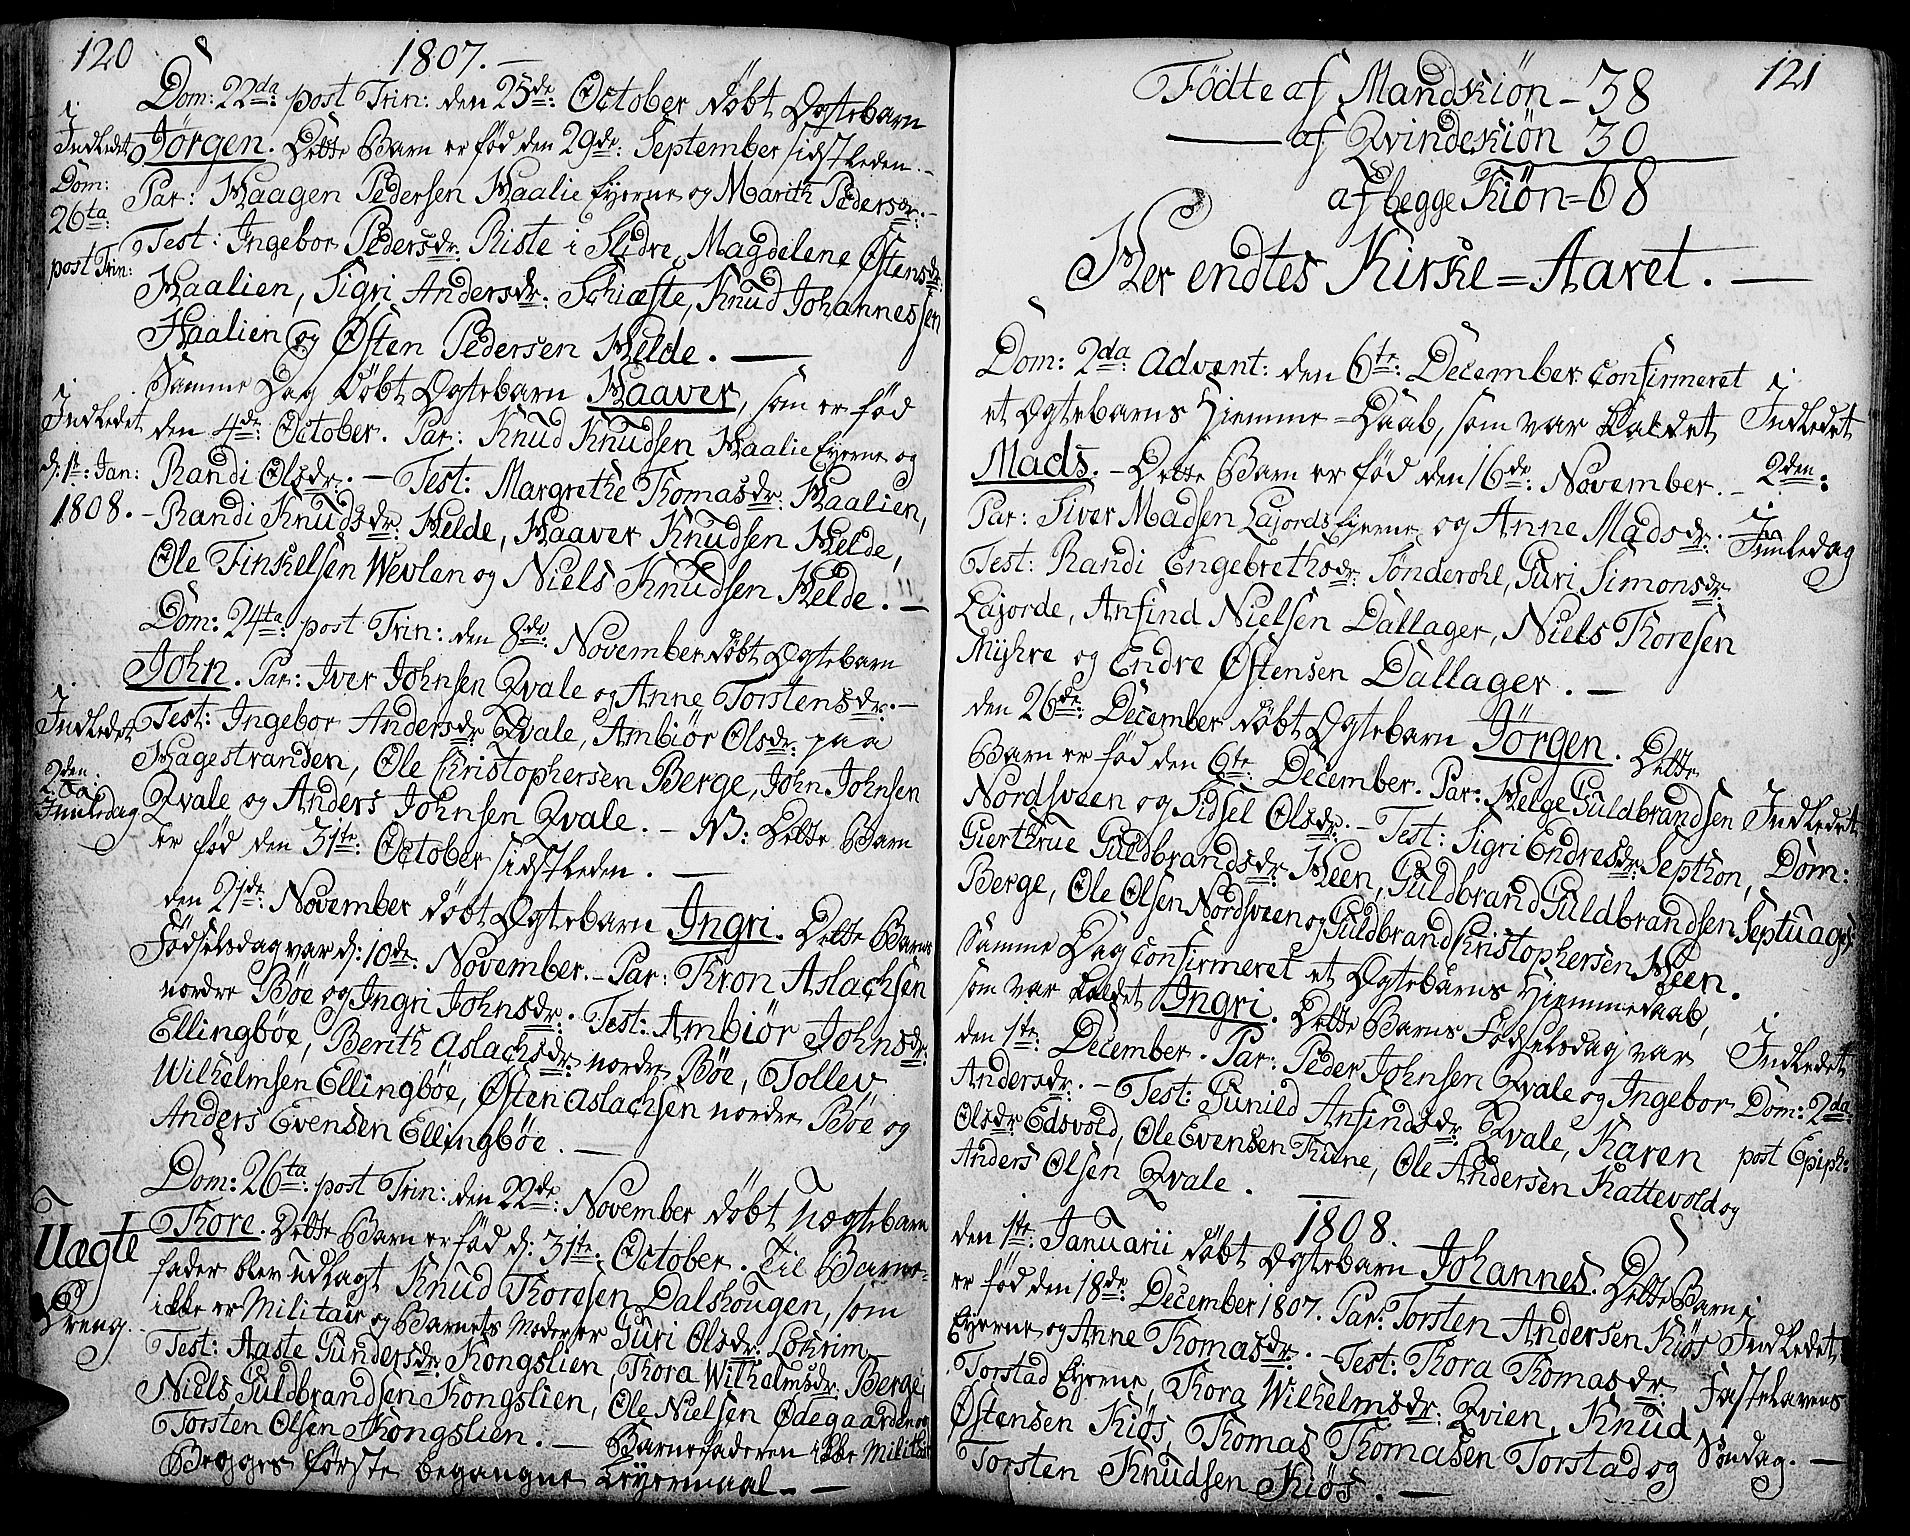 120
1807. —
Dom: 22da post Trin: den 25de: October døbt Ægtebarn
Jørgen. Dette Barn er fød den 29de: September sidstleden. —
Par: Haagen Pedersen Haalie Eyerne og Marith Pedersdr: —
Test: Ingebor Pedersdr: Riste i Slidre, Magdelene Østensdr:
Haalien, Sigri Andersdr: Schiæste, Knud Johannessen
Haalien og Østen Pedersen Helde. —
i
Indledet
Dom:
26ta
post Trin:
Samme Dag døbt Ægtebarn Haaver, som er fød
den 4de: October. Par: Knud Knudsen Haalie Eyerne og
Randi Olsdr: — Test: Margrethe Thomasdr: Haalien,
Randi Knudsdr: Helde, Haaver Knudsen Helde,
Ole Finkelsen Wevlen og Niels Knudsen Helde. —
i
Indledet
d: 1te: Jan:
1808. —
Dom: 24ta: post Trin: den 8de: November døbt Ægtebarn
John. Par: Iver Johnsen Qvale og Anne Torstensdr: —
Test: Ingebor Andersdr: Qvale, Ambiør Olsdr: paa
Hagestranden, Ole Christophersen Berge, John Johnsen
Qvale og Anders Johnsen Qvale. — NB: Dette Barn
er fød den 31te: October sidstleden. —
i
Indledet
2den
Juuledag
den 21de: November døbt Ægtebarn Ingri. Dette Barns
Fødselsdag var d: 10de: November. — Par: Thron Aslachsen
nordre Bøe og Ingri Johnsdr: Test: Ambiør Johnsdr:
Ellingbøe, Berith Aslachsdr: nordre Bøe, Tollev
Wilhelmsen Ellingbøe, Østen Aslachsen nordre Bøe og
Anders Evensen Ellingbøe. —
Dom: 26ta: post Trin: den 22de: November døbt Uægtebarn
Thore. Dette Barn er fød d: 31te: October. Til Barne-
fader blev udlagt Knud Thoresen Dalshougen, som
ikke er Militair og Barnets Moder er Guri Olsdr: Lohrim
Test: Aaste Gundersdr: Kongslien, Thora Wilhelmsdr: Berge,
Niels Guldbrandsen Kongslien, Ole Nielsen Ødegaarden og
Torsten Olsen Kongslien. — Barnefaderen ikke Militair
Begges første begangne Leyermaal. —
Uægte
Dreng.
121
Fødte af Mandkiøn — 38
— af Qvindekiøn 30
af begge Kiøn = 68
Her endtes Kirke = Aaret. —
Dom: 2da Advent: den 6te: December confirmeret
et Ægtebarns Hiemme = Daab, som var kaldet
Mads. — Dette Barn er fød den 16de: November. —
Par: Siver Madsen Lajords Eyerne og Anne Madsdr: —
Test: Randi Engebrethsdr: Sønderohl, Guri Simonsdr:
Lajorde, Anfind Nielsen Dallager, Niels Thoresen
Myhre og Endre Østensen Dallager. —
i
Indledet
2den:
Juuledag
den 26de: December døbt Ægtebarn Jørgen. Dette
Barn er fød den 6te: December. Par: Helge Guldbrandsen
Nordsveen og Sidsel Olsdr: — Test: Sigri Endresdr: Septhon,
Gierthrue Guldbrandsdr: Heen, Guldbrand Guldbrandsen
Berge, Ole Olsen Nordsveen og Guldbrand Christophersen Heen.
Indledet
Dom:
Septuages
Samme Dag confirmeret et Ægtebarns Hiemmedaab,
som var kaldet Ingri. Dette Barns Fødselsdag var
den 1te: December. Par: Peder Johnsen Qvale og Ingebor
Andersdr: — Test: Gunild Anfindsdr: Qvale, Karen
Olsdr: Edsvold, Ole Evensen Thune, Ole Andersen Kattevold og
Anders Olsen Qvale.
i
Indledet
Dom: 2da
post Epiph:
1808.
den 1te: Januarii døbt Ægtebarn Johannes. Dette Barn
er fød den 18de: December 1807. Par: Torsten Andersen Kiøs
Eyerne og Anne Thomasdr: — Test: Thora Thomasdr:
Torstad Eyerne, Thora Wilhelmsdr: Qvien, Knud
Østensen Kiøs, Thomas Thomasen Torstad og
Torsten Knudsen Kiøs. —
i
Indledet
Fastelavens
Søndag. —